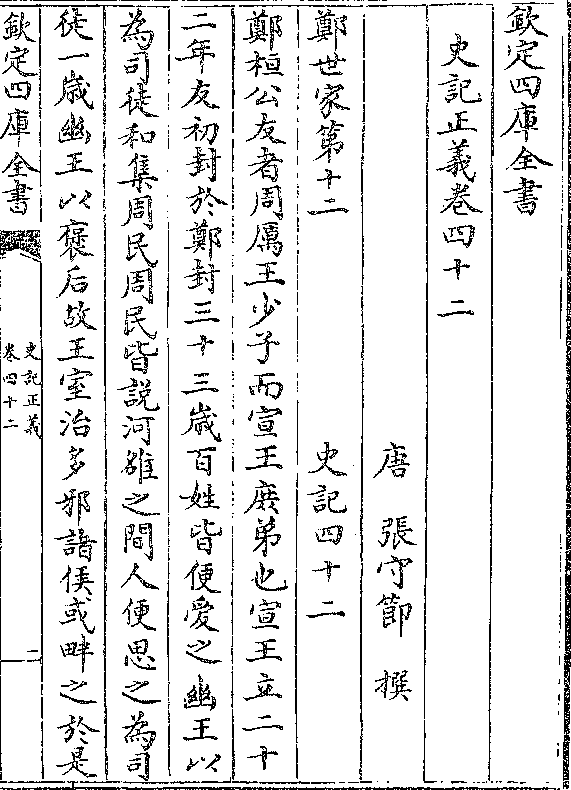 欽定四庫全書
史記正義卷四十二
唐 張守節 撰
鄭世家第十二 史記四十二
鄭桓公友者周厲王少子而宣王庶弟也宣王立二十
二年友初封於鄭封三十三歲百姓皆便愛之幽王以
為司徒和集周民周民皆說河雒之間人便思之為司
徒一歲幽王以襃后故王室治多邪諸侯或畔之於是
欽定四庫全書
史記正義
卷四十二
二